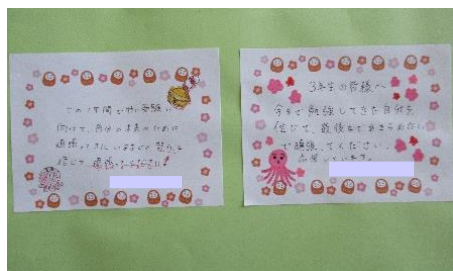 この1年間で特に受験に
向けて、自分の未来のために
頑張ってください
信じて、頑張ってください!
3年生の皆様へ
今まで勉強してきた自分を
信じて、最後まであきらめない
で頑張ってください。
応援しています。